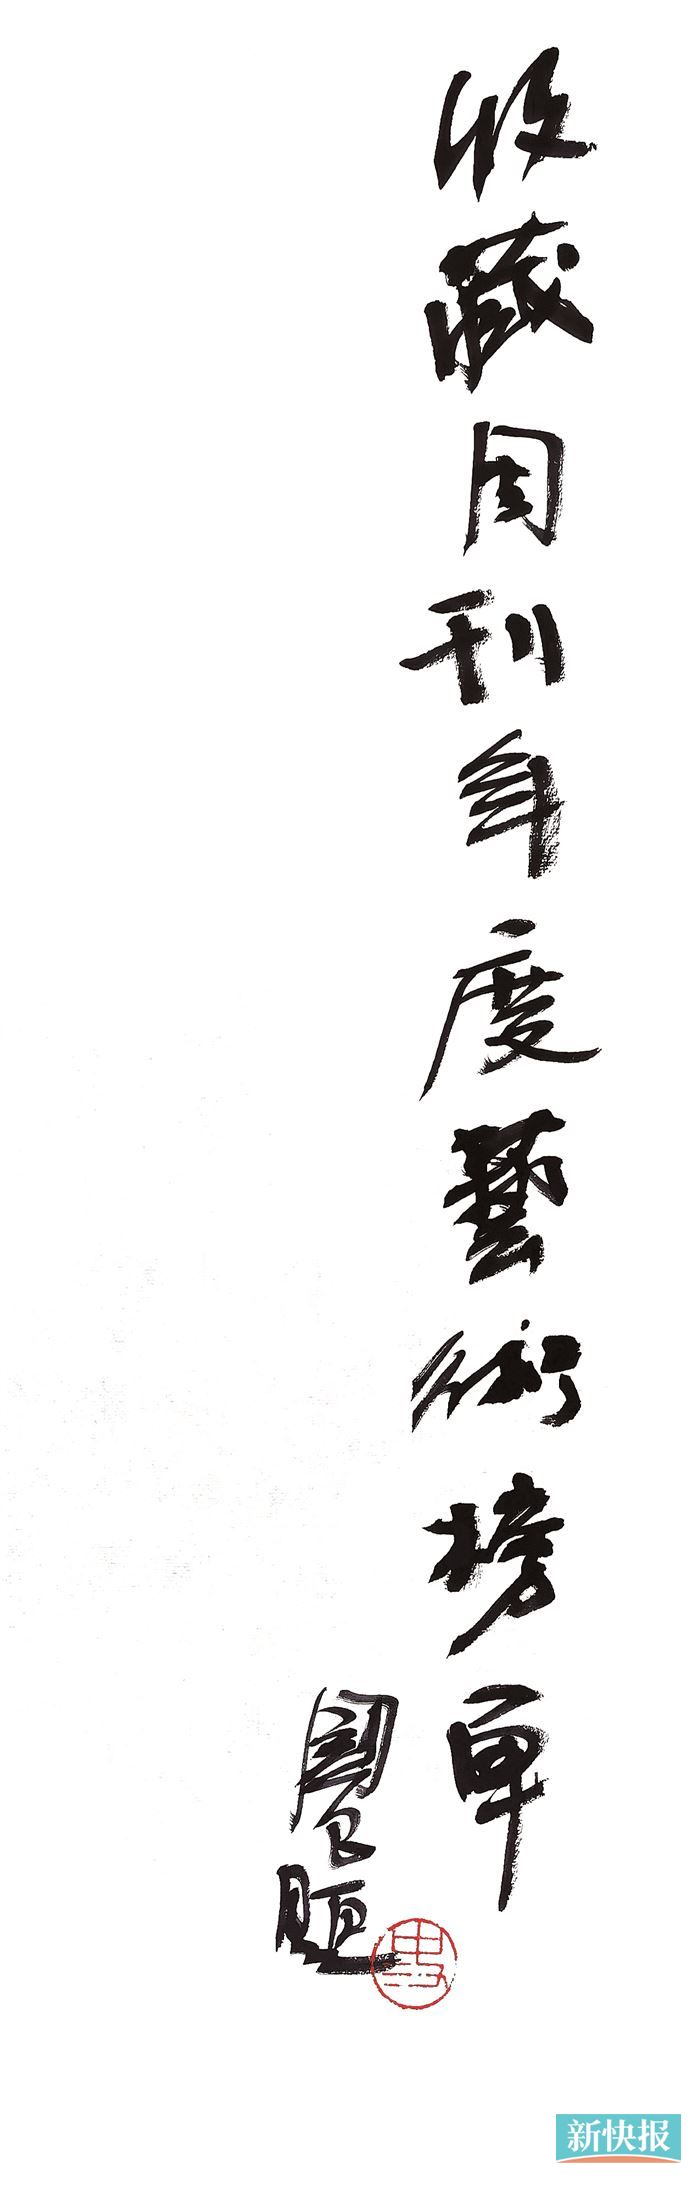 收藏周刊年度藝術榜单
題
新快报